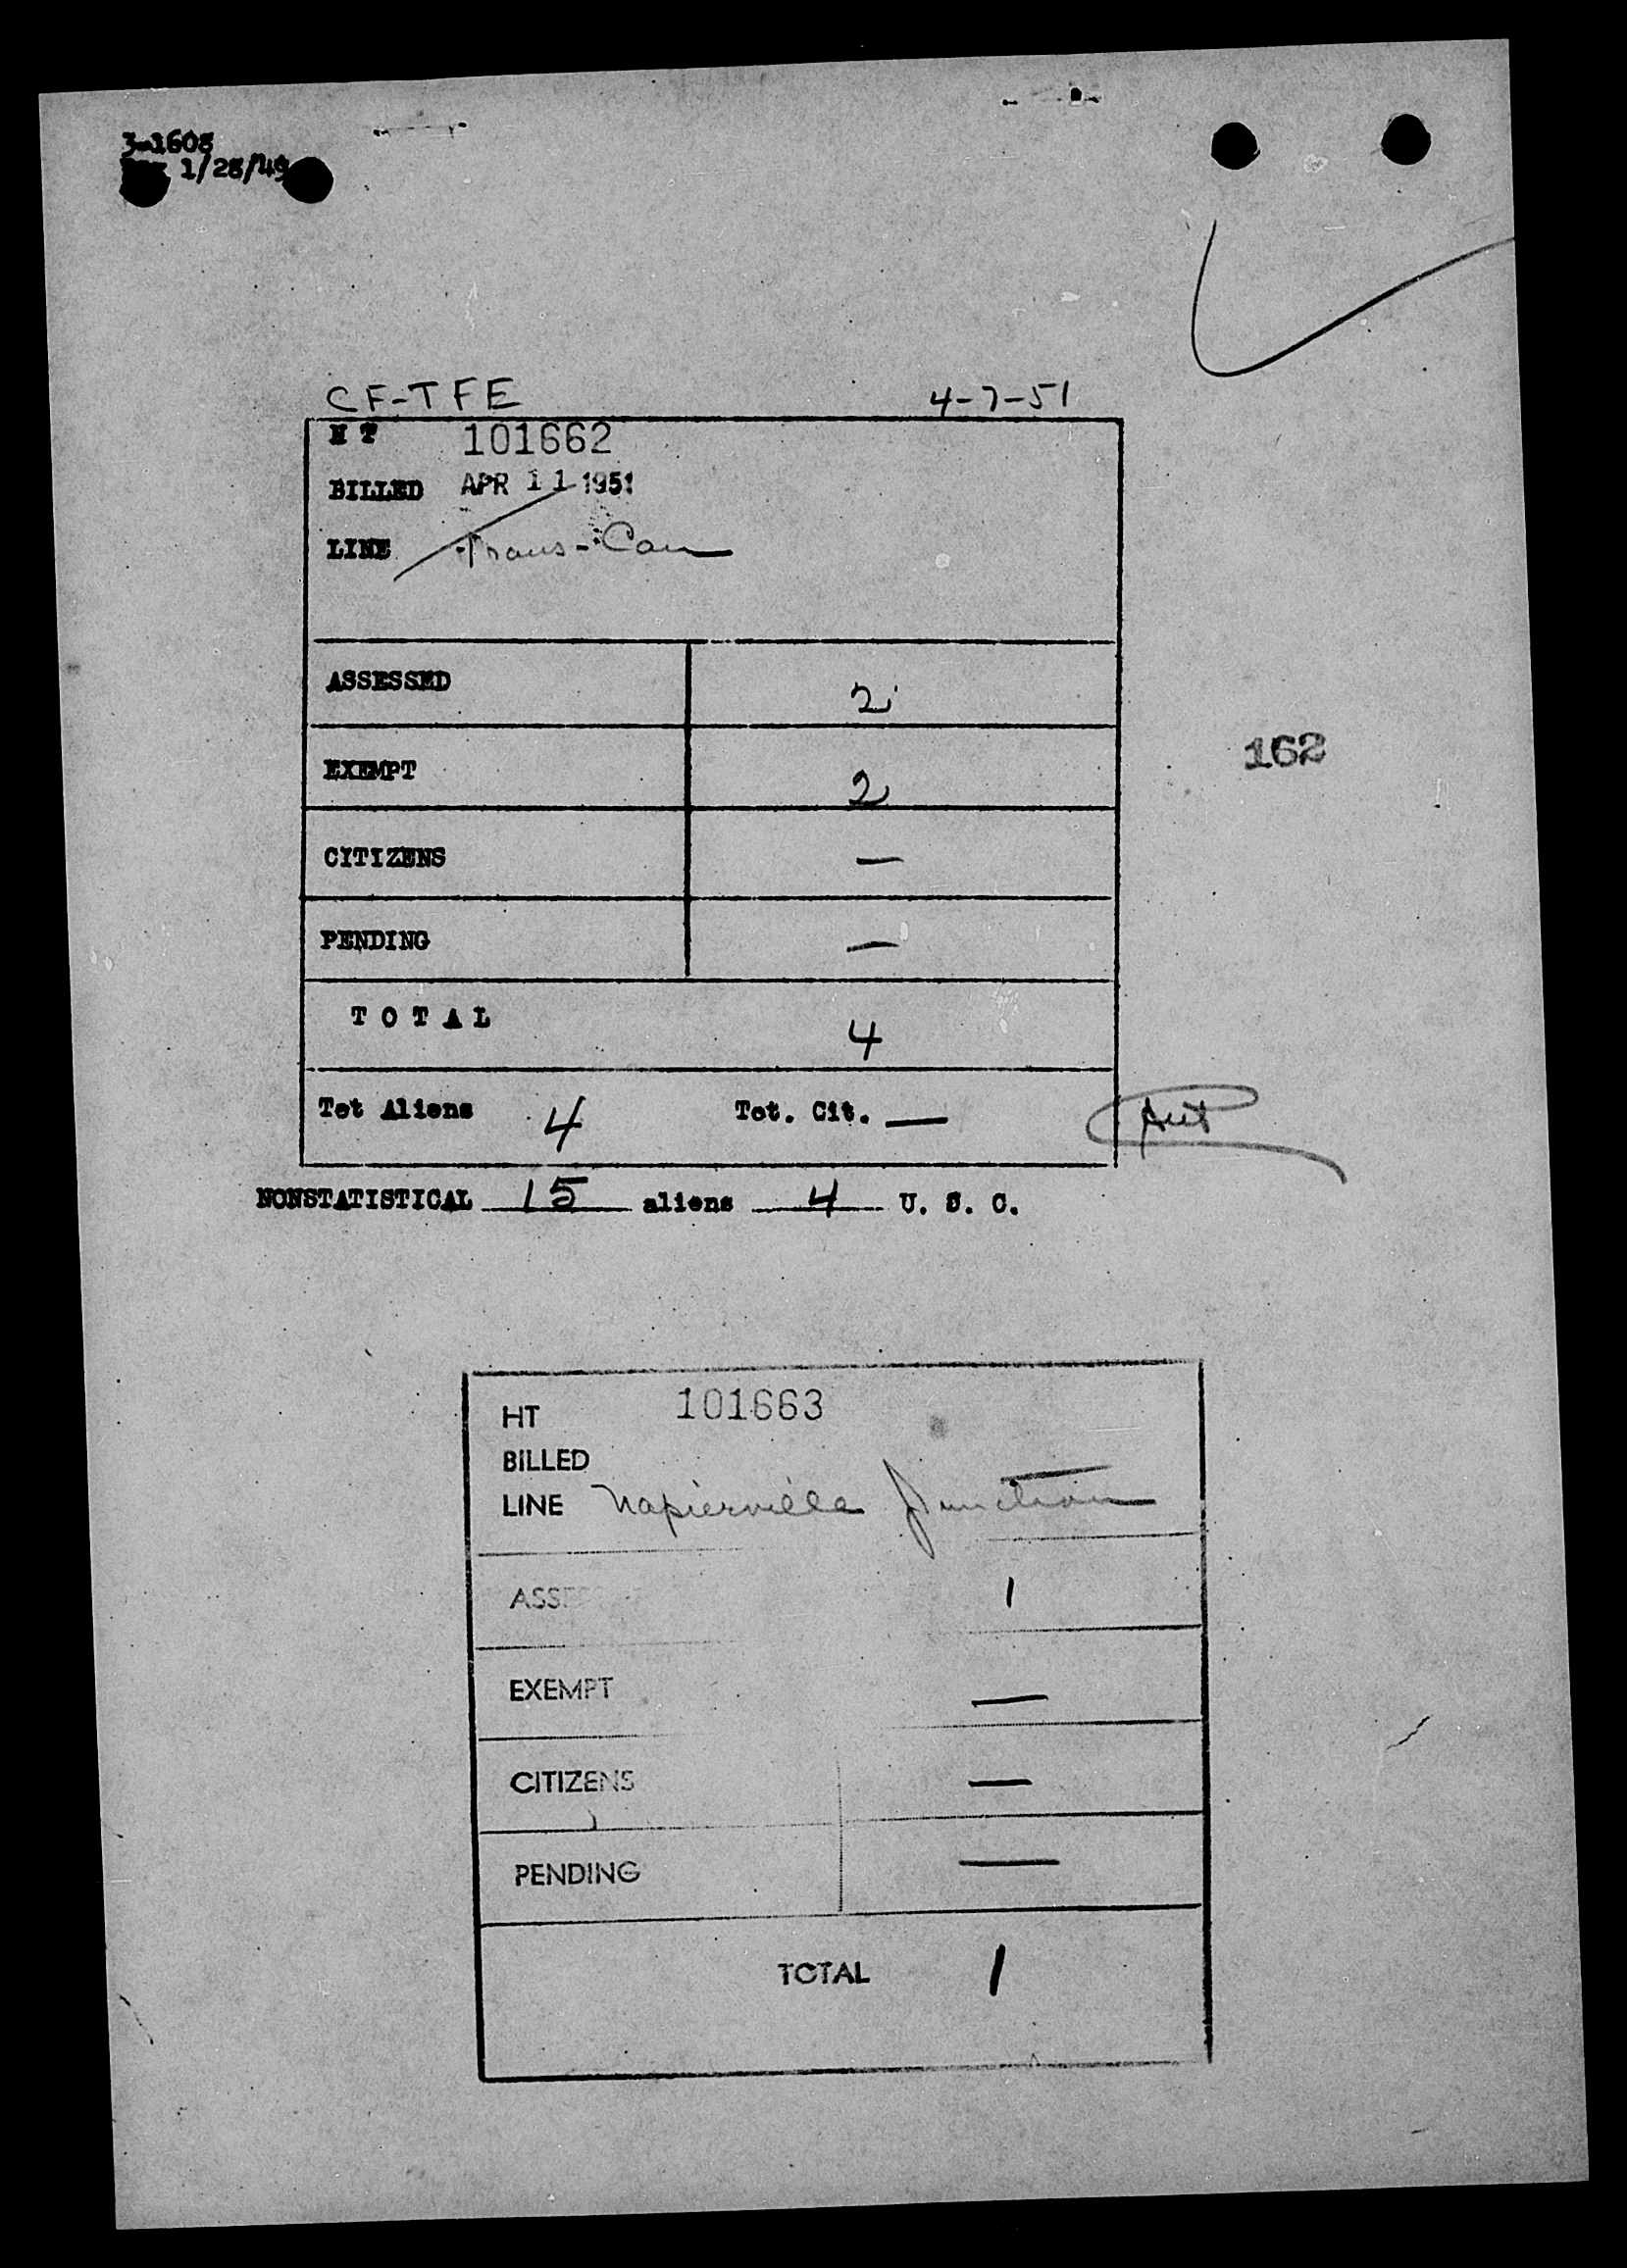 3-1608
1/28/49
CF-TFE 4-7-51
H T 101662
BILLED APR 11 1951
LINE Trans-Can
ASSESSED 2
EXEMPT 2
CITIZENS —
PENDING —
T O T A L 4
Tot Aliens 4 Tot. Cit. —
NONSTATISTICAL 15 aliens 4 U. S. C.
162
HT 101663
BILLED
LINE Napierville Junction
ASS 1
EXEMPT —
CITIZENS —
PENDING —
TOTAL 1